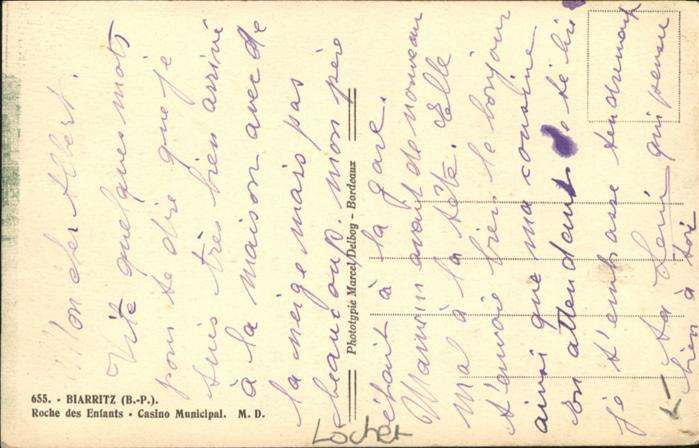 Mon cher Albert.
Vite quelques mots
pour te dire que je
suis très bien arrivé
à la maison avec de
la neige mais pas
beaucoup. mon père
était à la gare.
Maman avait de nouveau
mal à la tête. Elle
t'envoie bien le bonjour
ainsi que ma cousine
en attendant de te lire
je t'embrasse tendrement
Ta qui pense
bien à toi
655. - BIARRITZ (B.-P.).
Roche des Enfants - Casino Municipal. M. D.
Phototypie Marcel Delbog - Bordeaux
Locher